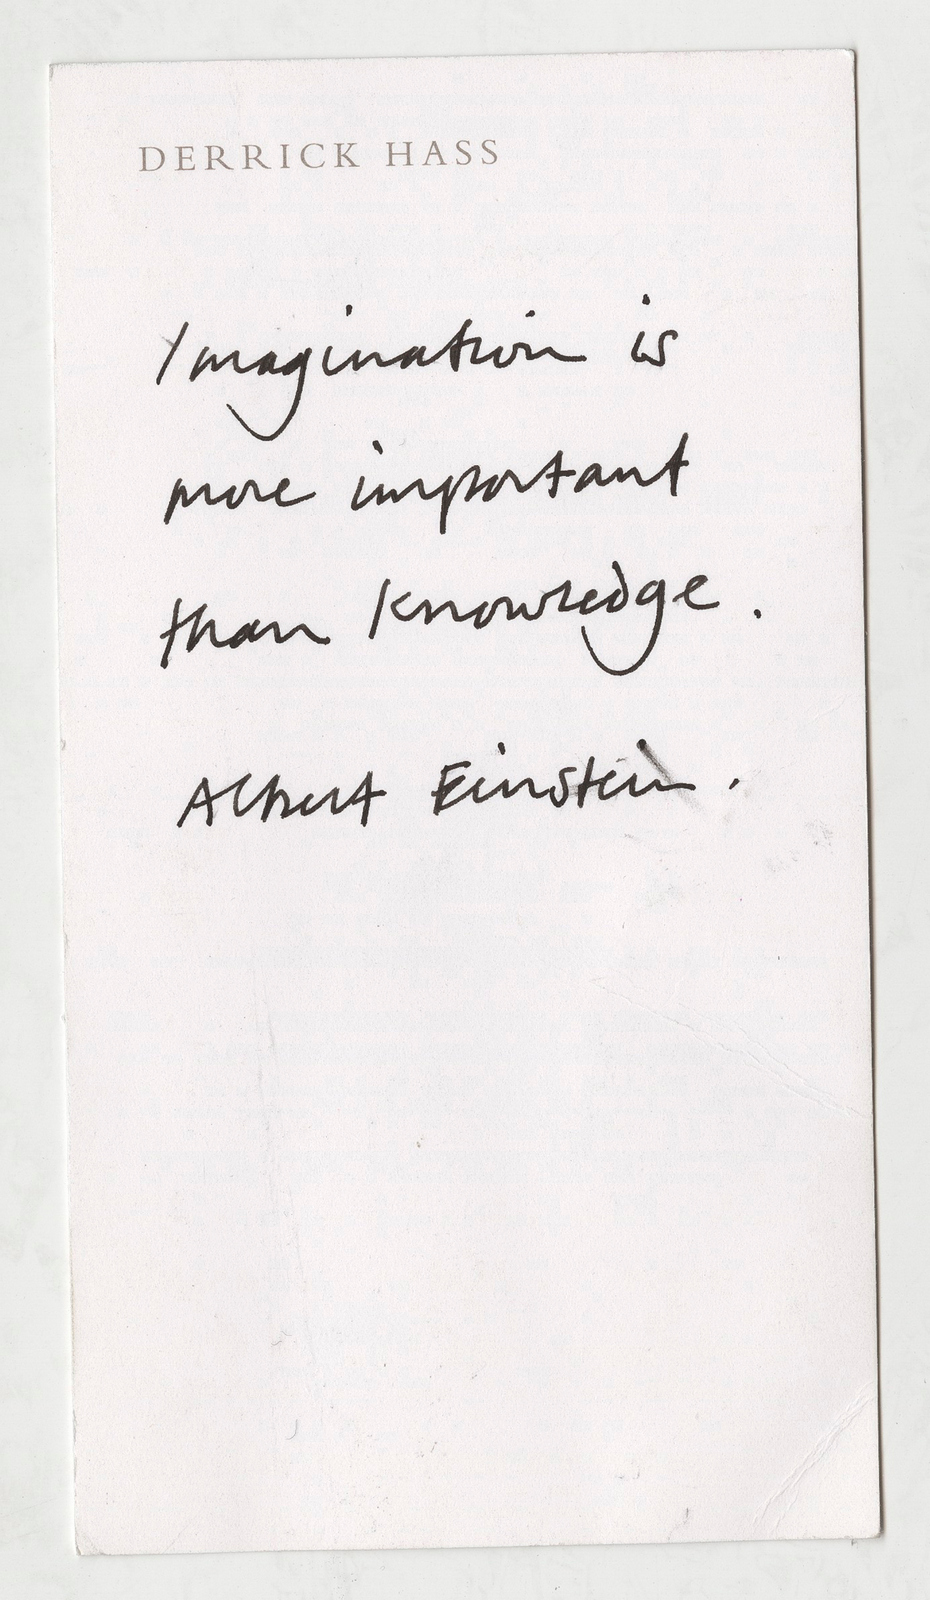 DERRICK HASS
Imagination is
more important
than knowledge.
Albert Einstein.